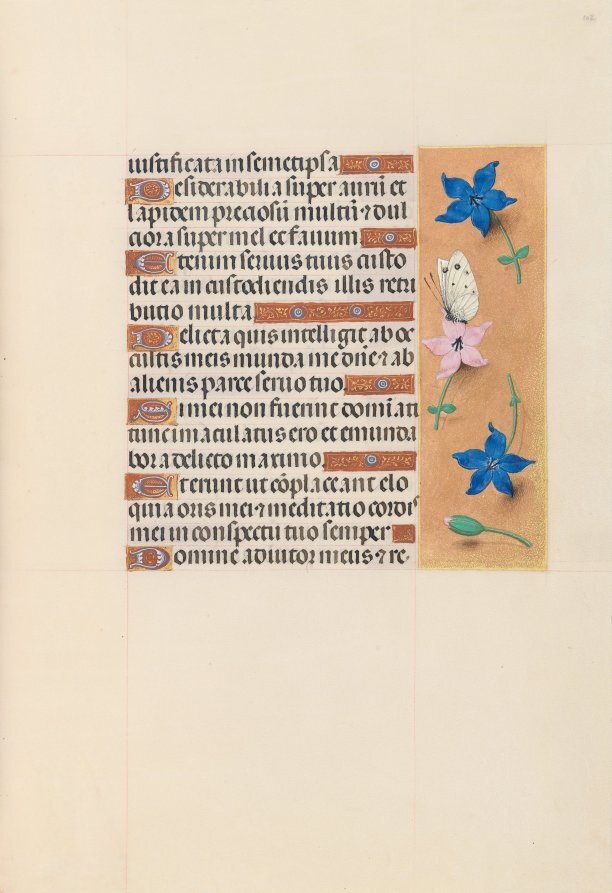 102
iustificata in semetipsa
Desiderabilia super aurū et
lapidem preciosū multū ⁊ dul
ciora super mel et fauum
Etenim seruus tuus custo
dit ea in custodiendis illis retri
butio multa
Delicta quis intelligit ab oc
cultis meis munda me dn̄e ⁊ ab
alienis parce seruo tuo
Si mei non fuerint domiati
tunc imaculatus ero et emunda
bor a delicto maximo
Et erunt ut cōplaceant elo
quia oris mei ⁊ meditatio cordis
mei in conspectu tuo semper
Domine adiutor meus ⁊ re-